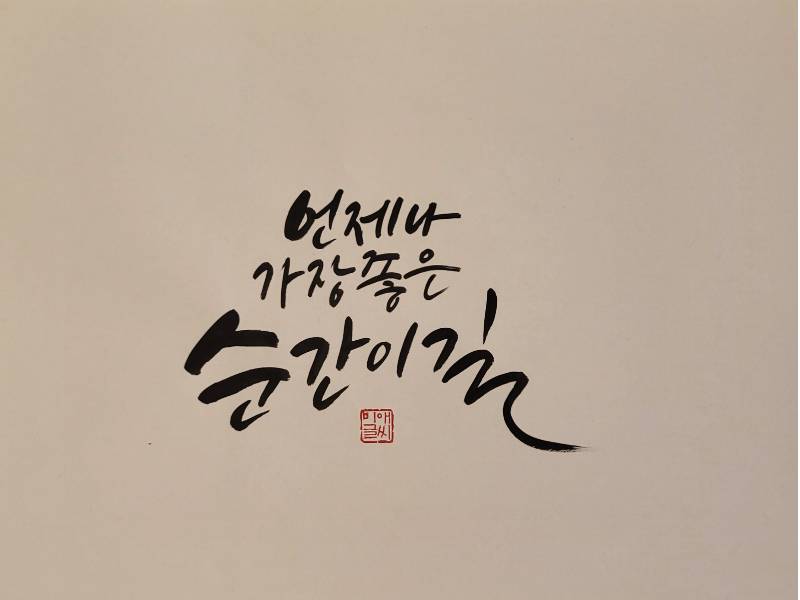 언제나
가장좋은
순간이길
미애
글씨